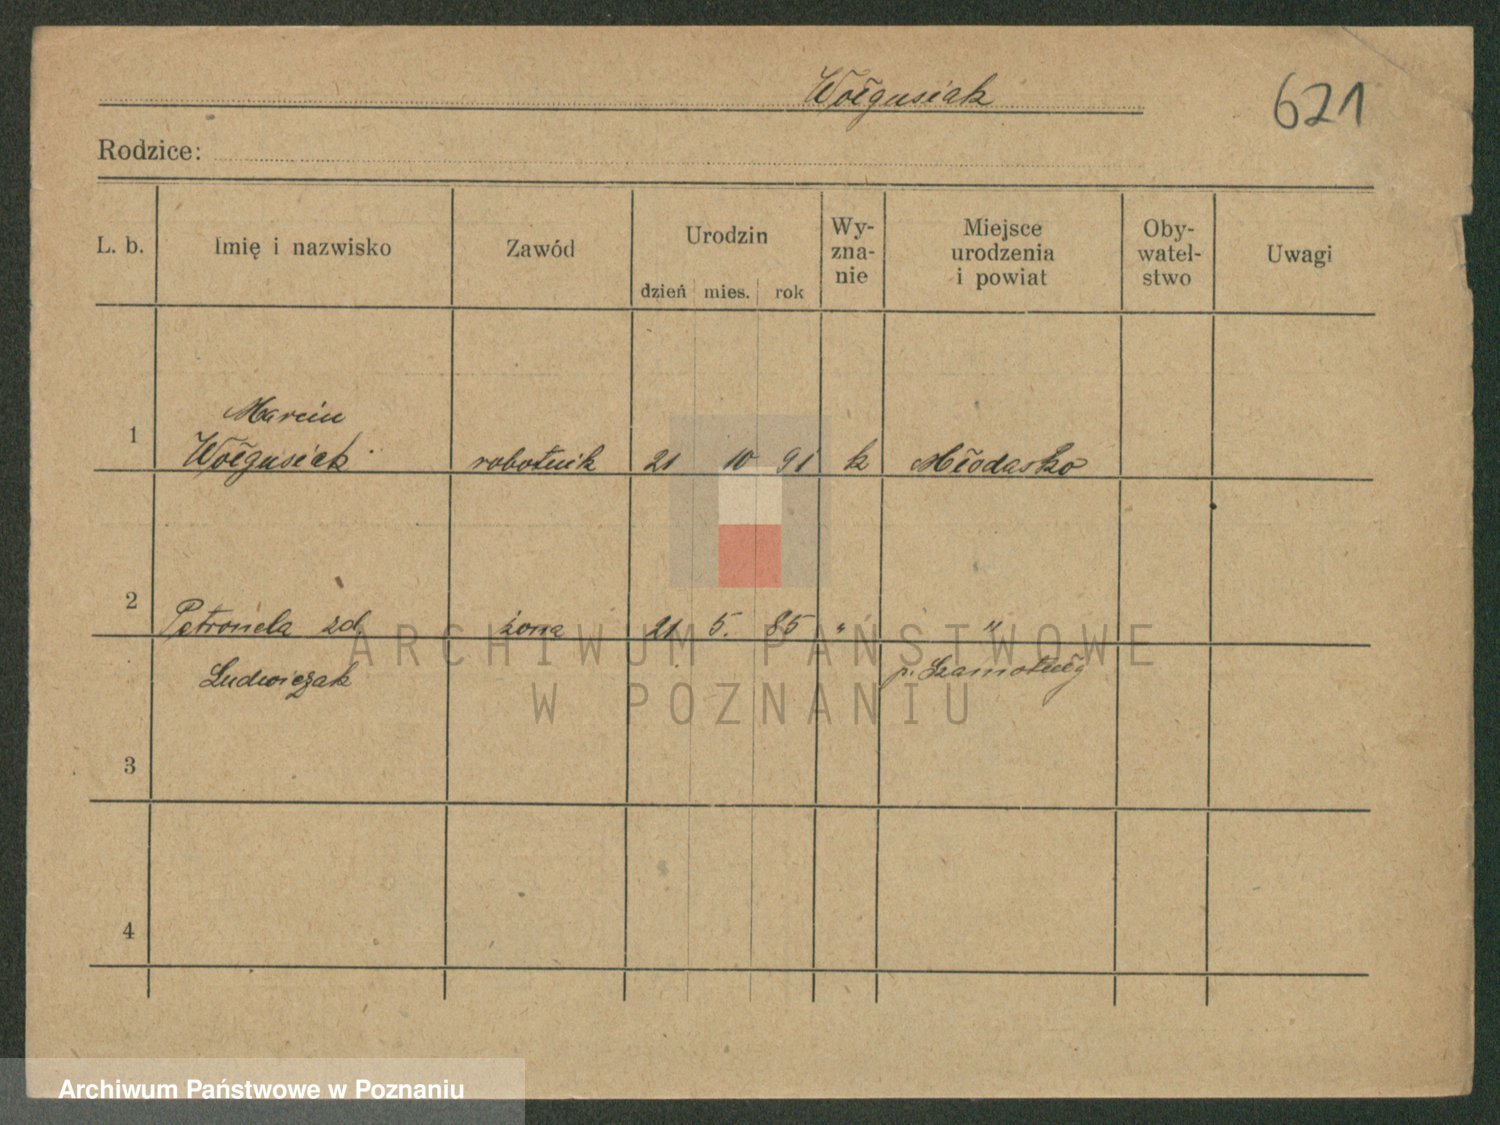 Wołgusiak
621
Rodzice:
L. b. Imię i nazwisko Zawód Urodzin Wy-zna-nie Miejsce urodzenia i powiat Oby-watel-stwo Uwagi
dzień mies. rok
Marcin
1 Wołgusiak robotnik 21 10 91 k Młodasko
2 Petronela zd. żona 21 5. 85 " "
Ludwiczak p. Szamotuły
3
4
ARCHIWUM PAŃSTWOWE
W POZNANIU
Archiwum Państwowe w Poznaniu